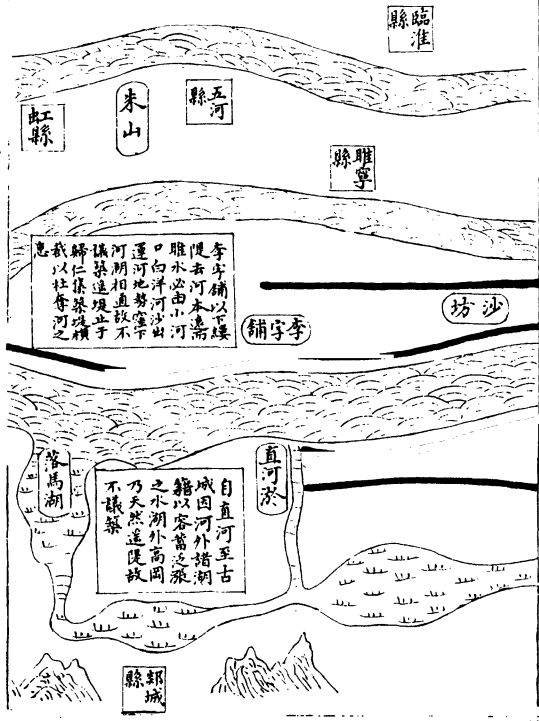 臨淮
縣
五河
縣
朱山
虹縣
睢寧
縣
李字鋪以下縷
隄去河本遠而
睢水必由小河
口白洋河沙出
運河地勢窪下
河湖相通故不
議築遙堤止于
歸仁集築堤橫
截以杜奪河之
患
沙坊
李字鋪
直河淤
落馬湖
自直河至古
城因河外諸湖
籍以容蓄泛漲
之水湖外高岡
乃天然遙隄故
不議築
郯城
縣